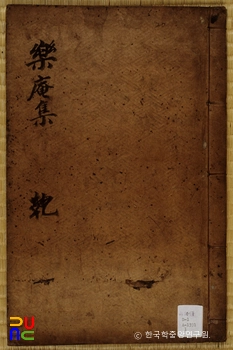 樂庵集
乾
© 한국학중앙연구원